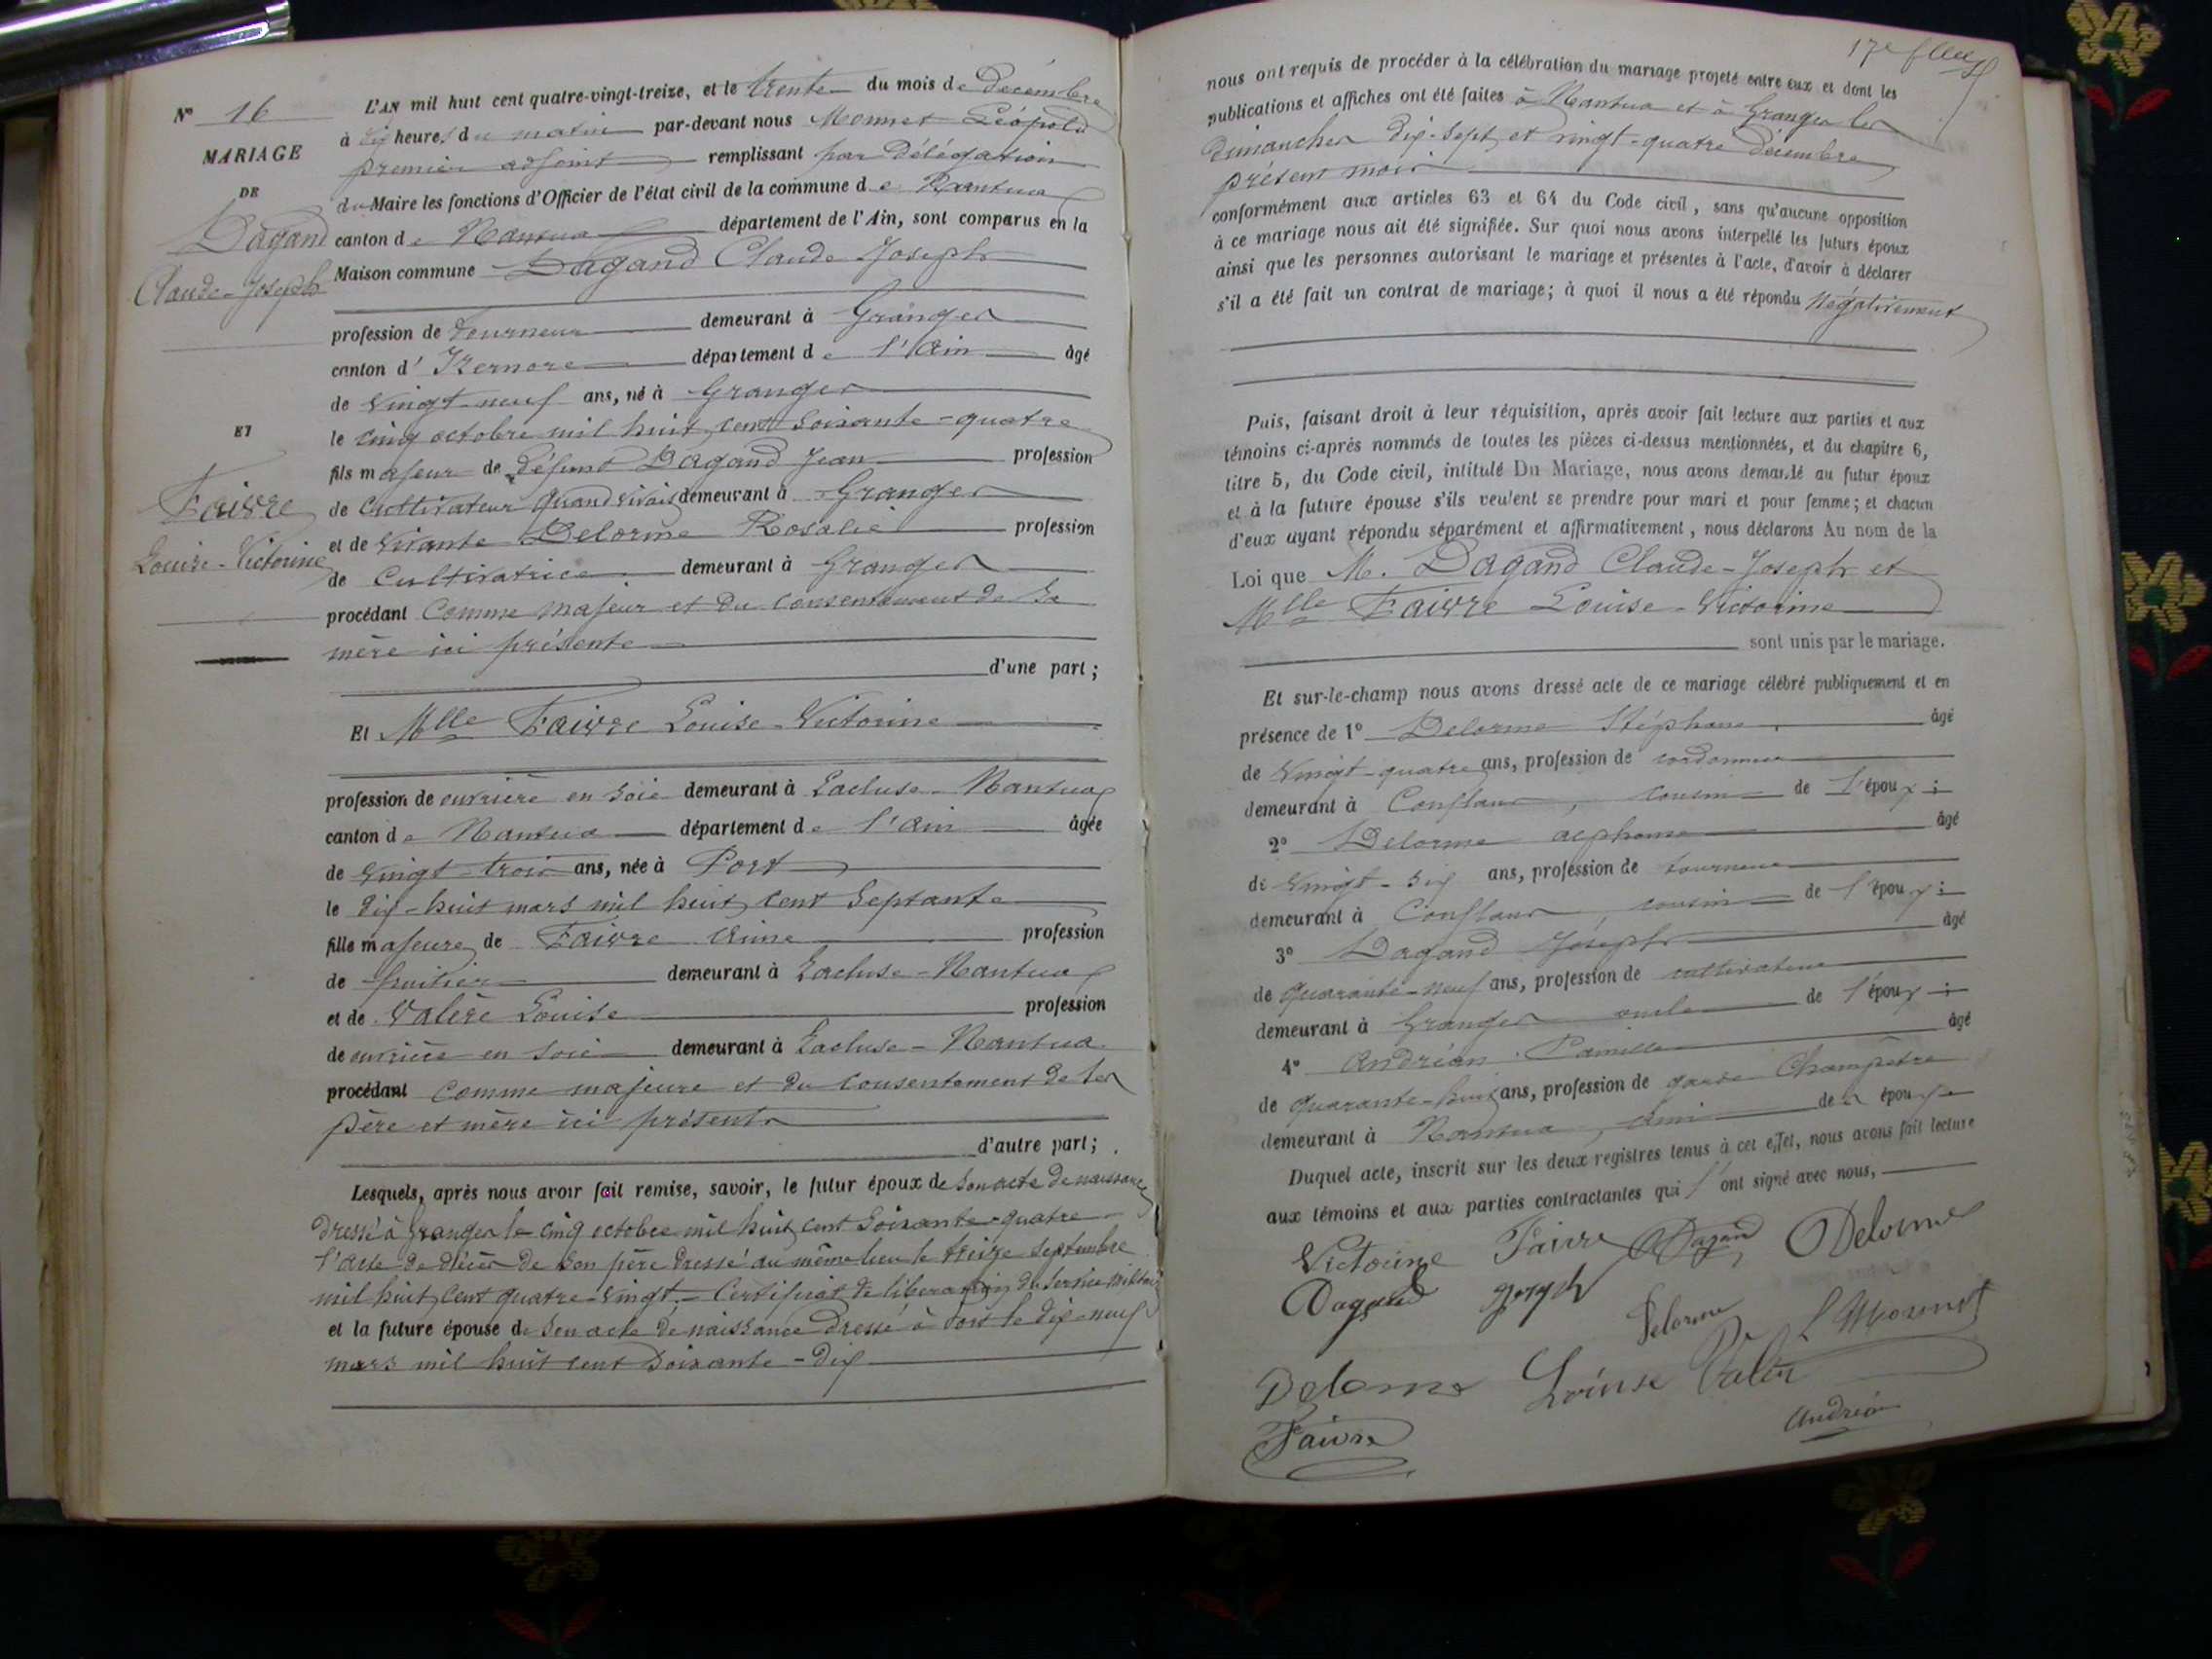 N° 16
MARIAGE
DE
Dagand
Claude-Joseph
ET
Faivre
Louise-Victorine
L'AN mil huit cent quatre-vingt-treize, et le trente du mois de Décembre
à dix heures du matin par-devant nous Monnet Léopold
premier adjoint remplissant par Délégation
du Maire les fonctions d'Officier de l'état civil de la commune de Nantua
canton de Nantua département de l'Ain, sont comparus en la
Maison commune Dagand Claude Joseph
profession de tourneur demeurant à Granges
canton d' Izernore département de l'Ain âgé
de vingt-neuf ans, né à Granges
le cinq octobre mil huit cent soixante-quatre
fils majeur de défunt Dagand Jean profession
de Cultivateur quand vivait demeurant à Granges
et de vivante Delorme Rosalie profession
de Cultivatrice demeurant à Granges
procédant comme majeur et du consentement de sa
mère ici présente
d'une part;
Et Mlle Faivre Louise-Victorine
profession de ouvrière en soie demeurant à Lacluse-Nantua
canton de Nantua département de l'Ain âgée
de vingt-trois ans, née à Port
le dix-huit mars mil huit cent septante
fille majeure de Faivre Aimé profession
de fruitier demeurant à Lacluse-Nantua
et de Valère Louise profession
de ouvrière en soie demeurant à Lacluse-Nantua
procédant comme majeure et du consentement de ses
père et mère ici présents
d'autre part;
Lesquels, après nous avoir fait remise, savoir, le futur époux de son acte de naissance
dressé à Granges le cinq octobre mil huit cent soixante-quatre
l'acte de décès de son père dressé au même lieu le treize septembre
mil huit cent quatre-vingt. - Certificat de libération du service militaire
et la future épouse de son acte de naissance dressé à Port le dix-neuf
mars mil huit cent soixante-dix
17e
nous ont requis de procéder à la célébration du mariage projeté entre eux et dont les
publications et affiches ont été faites à Nantua et à Granges les
dimanches dix-sept et vingt-quatre Décembre
présent mois
conformément aux articles 63 et 64 du Code civil, sans qu'aucune opposition
à ce mariage nous ait été signifiée. Sur quoi nous avons interpellé les futurs époux
ainsi que les personnes autorisant le mariage et présentes à l'acte, d'avoir à déclarer
s'il a été fait un contrat de mariage; à quoi il nous a été répondu négativement
Puis, faisant droit à leur réquisition, après avoir fait lecture aux parties et aux
témoins ci-après nommés de toutes les pièces ci-dessus mentionnées, et du chapitre 6,
titre 5, du Code civil, intitulé Du Mariage, nous avons demandé au futur époux
et à la future épouse s'ils veulent se prendre pour mari et pour femme; et chacun
d'eux ayant répondu séparément et affirmativement, nous déclarons Au nom de la
Loi que M. Dagand Claude-Joseph et
Mlle Faivre Louise-Victorine
sont unis par le mariage.
Et sur-le-champ nous avons dressé acte de ce mariage célébré publiquement et en
présence de 1° Delorme Stéphane âgé
de vingt-quatre ans, profession de cordonnier
demeurant à Conflans, cousin de l'époux;
2° Delorme Alphonse âgé
de vingt-six ans, profession de tourneur
demeurant à Conflans, cousin de l'époux;
3° Dagand Joseph âgé
de quarante-neuf ans, profession de cultivateur
demeurant à Granges oncle de l'époux;
4° Andréan Camille âgé
de quarante-huit ans, profession de garde Champêtre
demeurant à Nantua, ami des époux
Duquel acte, inscrit sur les deux registres tenus à cet effet, nous avons fait lecture
aux témoins et aux parties contractantes qui l'ont signé avec nous,
Victorine Faivre Dagand Delorme
Dagand joseph Delorme L Monnet
Delorme Louise Valère
Faivre Andréan